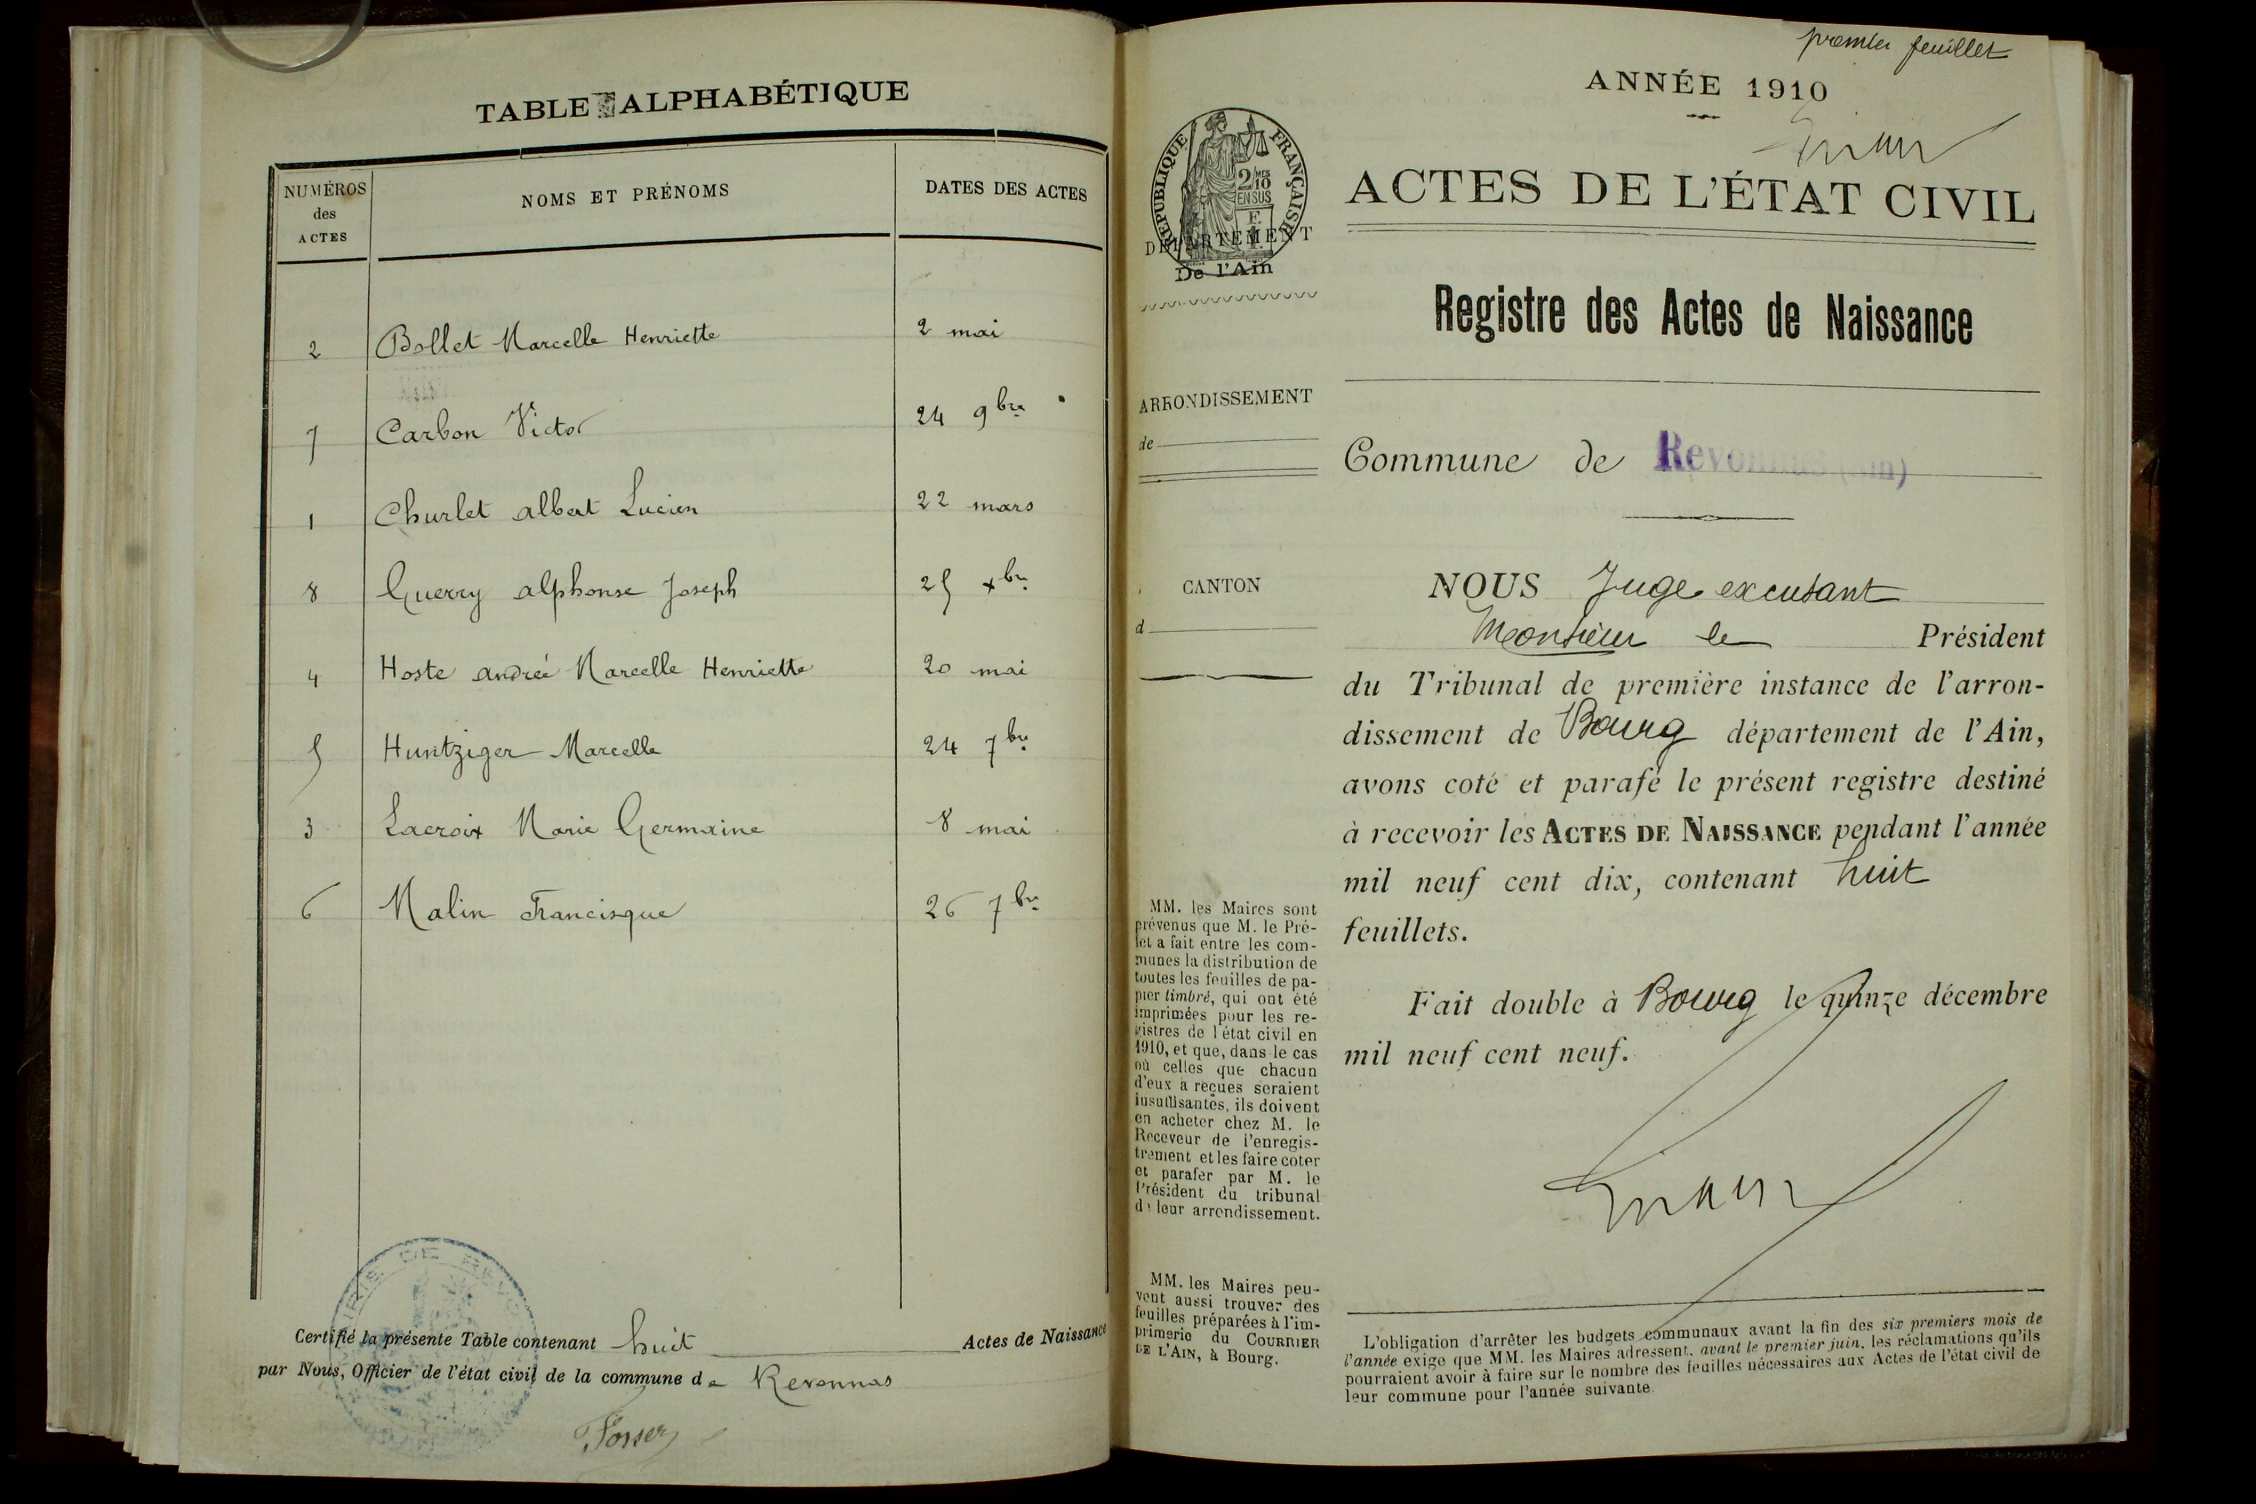 TABLE ALPHABÉTIQUE
NUMÉROS des ACTES NOMS ET PRÉNOMS DATES DES ACTES
2 Bollet Marcelle Henriette 2 mai
7 Carbon Victor 24 9bre
1 Churlet Albert Lucien 22 mars
8 Guerry Alphonse Joseph 25 xbre
4 Hoste Andrée Marcelle Henriette 20 mai
5 Huntziger Marcelle 24 7bre
3 Lacroix Marie Germaine 8 mai
6 Malin Francisque 26 7bre
Certifié la présente Table contenant huit Actes de Naissance
par Nous, Officier de l'état civil de la commune de Revonnas
premier feuillet
ANNÉE 1910
RÉPUBLIQUE FRANÇAISE
2/10 EN SUS
DÉPARTEMENT
De l'Ain
ACTES DE L'ÉTAT CIVIL
Registre des Actes de Naissance
ARRONDISSEMENT
de
Commune de Revonnas (Ain)
CANTON
d
NOUS Juge excusant
Monsieur le Président
du Tribunal de première instance de l'arron-
dissement de Bourg département de l'Ain,
avons coté et parafé le présent registre destiné
à recevoir les ACTES DE NAISSANCE pendant l'année
mil neuf cent dix, contenant huit
feuillets.
Fait double à Bourg le quinze décembre
mil neuf cent neuf.
MM. les Maires sont
prévenus que M. le Pré-
fet a fait entre les com-
munes la distribution de
toutes les feuilles de pa-
pier timbré, qui ont été
imprimées pour les re-
gistres de l'état civil en
1910, et que, dans le cas
où celles que chacun
d'eux a reçues seraient
insuffisantes, ils doivent
en acheter chez M. le
Receveur de l'enregis-
trement et les faire coter
et parafer par M. le
Président du tribunal
de leur arrondissement.
MM. les Maires peu-
vent aussi trouver des
feuilles préparées à l'im-
primerie du COURRIER
DE L'AIN, à Bourg.
L'obligation d'arrêter les budgets communaux avant la fin des six premiers mois de
l'année exige que MM. les Maires adressent, avant le premier juin, les réclamations qu'ils
pourraient avoir à faire sur le nombre des feuilles nécessaires aux Actes de l'état civil de
leur commune pour l'année suivante.